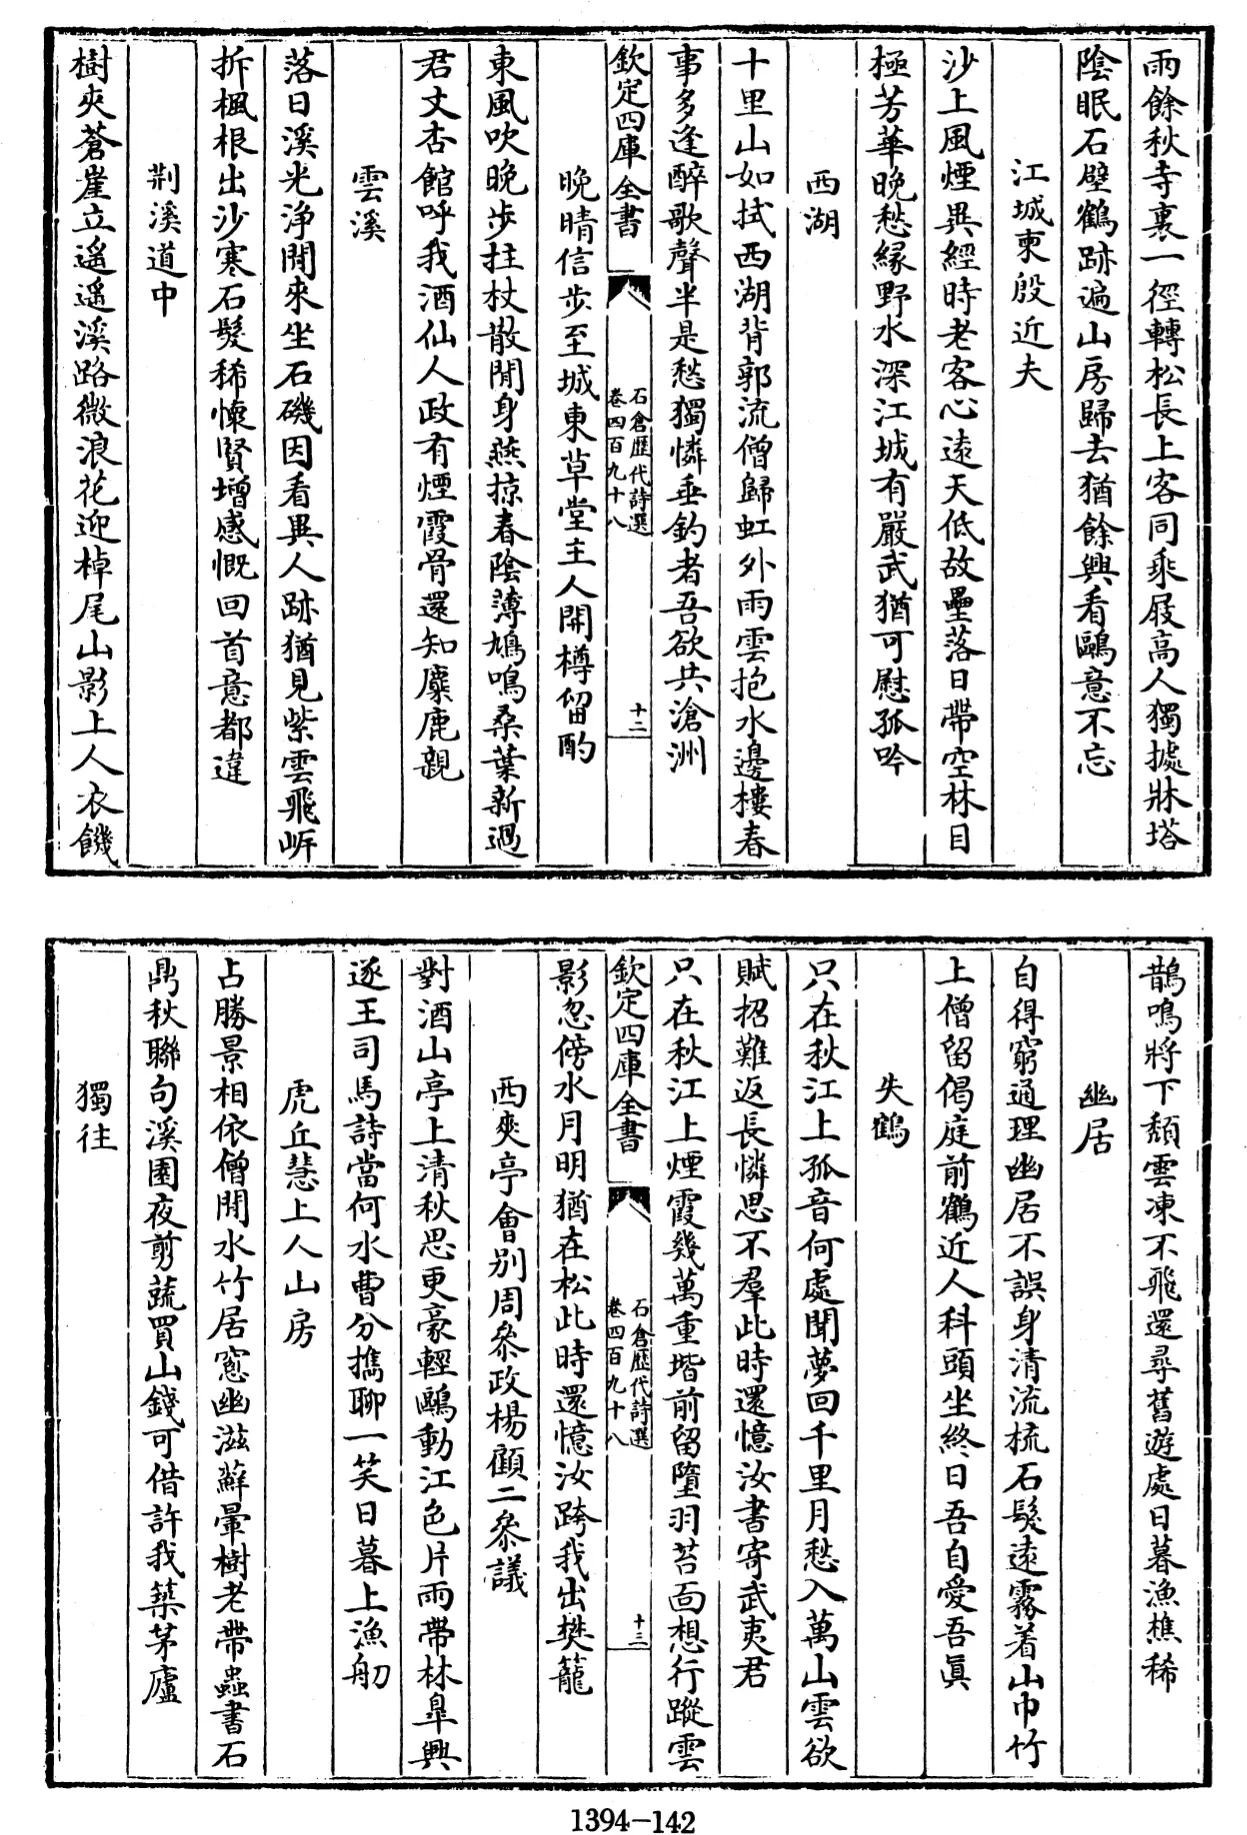 雨餘秋寺裏一徑轉松長上客同乘屐高人獨據牀塔
陰眠石壁鶴跡遍山房歸去猶餘興看鷗意不忘
江城柬殷近夫
沙上風煙異經時老客心遠天低故壘落日帶空林目
極芳華晚愁緣野水深江城有嚴武猶可慰孤吟
西湖
十里山如拭西湖背郭流僧歸虹外雨雲抱水邊樓春
事多逢醉歌聲半是愁獨憐垂釣者吾欲共滄洲
欽定四庫全書
石倉歷代詩選
卷四百九十八
十二
晚晴信步至城東草堂主人開樽留酌
東風吹晚步拄杖散閒身燕掠春陰薄鳩鳴桑葉新過
君文杏館呼我酒仙人政有煙霞骨還知麋鹿親
雲溪
落日溪光淨閒來坐石磯因看異人跡猶見紫雲飛岍
拆楓根出沙寒石髮稀懷賢增感慨回首意都違
荆溪道中
樹夾蒼崖立遥遥溪路微浪花迎棹尾山影上人衣饑
鵲鳴將下頹雲凍不飛還尋舊遊處日暮漁樵稀
幽居
自得窮通理幽居不誤身清流梳石髮遠霧着山巾竹
上僧留偈庭前鶴近人科頭坐終日吾自愛吾眞
失鶴
只在秋江上孤音何處聞夢回千里月愁入萬山雲欲
賦招難返長憐思不羣此時還憶汝書寄武夷君
只在秋江上煙霞幾萬重堦前留墮羽苔面想行蹤雲
欽定四庫全書
石倉歷代詩選
卷四百九十八
十三
影忽傍水月明猶在松此時還憶汝跨我出樊籠
西爽亭會别周參政楊顧二參議
對酒山亭上清秋思更豪輕鷗動江色片雨帶林臯興
逐王司馬詩當何水曹分攜聊一笑日暮上漁舠
虎丘慧上人山房
占勝景相依僧閒水竹居窻幽滋蘚暈樹老帶蟲書石
鼎秋聯句溪園夜剪蔬買山錢可借許我築茅廬
獨往
1394-142